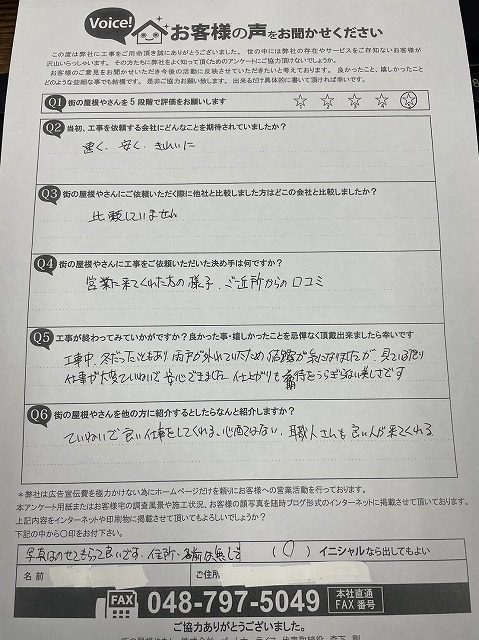 Voice! お客様の声をお聞かせください
この度は弊社に工事をご用命頂き誠にありがとうございました。世の中には弊社の存在やサービスをご存知ないお客様が
沢山いらっしゃいます。その方たちに弊社をよく知って頂くためのアンケートにご協力頂けないでしょうか。
お客様のご意見をお聞かせいただき今後の活動に反映させていただきたいと考えております。良かったこと、嬉しかったこと
どのような些細な事でも結構です。是非ご協力お願い致します。出来るだけ具体的に書いて頂ければ幸いです。
Q1 街の屋根やさんを5段階で評価をお願いします
Q2 当初、工事を依頼する会社にどんなことを期待されていましたか?
速く、安く、きれいに
Q3 街の屋根やさんにご依頼いただく際に他社と比較しました方はどこの会社と比較しましたか?
比較していません
Q4 街の屋根やさんに工事をご依頼いただいた決め手は何ですか?
営業に来てくれた方の様子、ご近所からの口コミ
Q5 工事が終わってみていかがですか?良かった事・嬉しかったことを忌憚なく頂戴出来ましたら幸いです
工事中、冬だったこともあり 雨戸が外れていたため 結露が気になりましたが、見ている限り
仕事が大変ていねいで 安心できました 仕上がりも 期待をうらぎらない美しさです
Q6 街の屋根やさんを他の方に紹介するとしたらなんと紹介しますか?
ていねいで良い仕事をしてくれる、心配ではない、職人さんも良い人が来てくれる
*弊社は広告宣伝費を極力かけない為にホームページだけを頼りにお客様への営業活動を行っております。
本アンケート用紙またはお客様宅の調査風景や施工状況、お客様の顔写真を随時ブログ形式のインターネットに掲載させて頂いております。
上記内容をインターネットや印刷物に掲載させて頂いてもよろしいでしょうか?
下記の中から〇印をお付下さい。
写真はのせてもらって良いです。住所・名前は無しで ( 〇 ) イニシャルなら出してもよい
名前 ご住所
FAX 048-797-5049 本社直通
FAX番号
ご協力ありがとうございました。